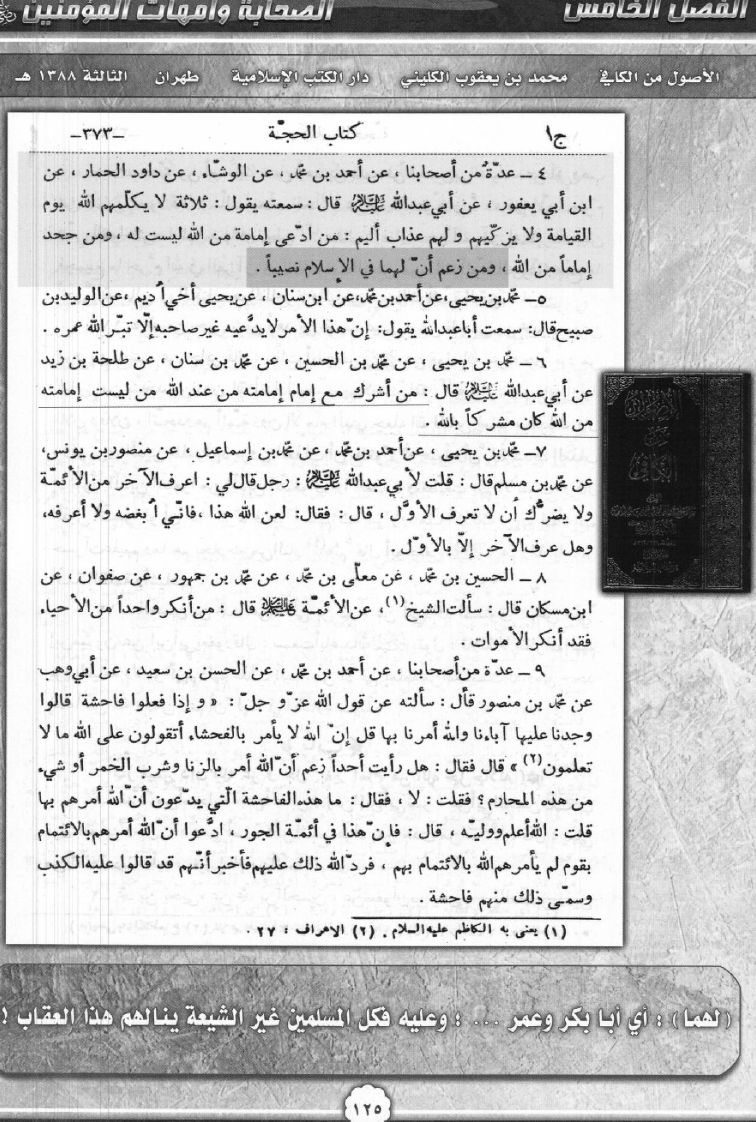 الفصل الخامس
الصحابة وأمهات المؤمنين
الأصول من الكافي محمد بن يعقوب الكليني دار الكتب الإسلامية طهران الثالثة ١٣٨٨ هـ
ج١ كتاب الحجّة -٣٧٣-
٤ ـ عدّةٌ من أصحابنا ، عن أحمد بن محمّد ، عن الوشّاء ، عن داود الحمار ، عن
ابن أبي يعفور ، عن أبي عبدالله عليه السلام قال : سمعته يقول : ثلاثة لا يكلّمهم الله يوم
القيامة ولا يزكّيهم و لهم عذاب أليم : من ادّعى إمامة من الله ليست له ، ومن جحد
إماماً من الله ، ومن زعم أنّ لهما في الإسلام نصيباً .
٥ ـ محمّد بن يحيى ، عن أحمد بن محمّد ، عن ابن سنان ، عن يحيى أخي اُديم ، عن الوليد بن
صبيح قال : سمعت أباعبدالله يقول : إنّ هذا الأمر لا يدّعيه غير صاحبه إلّا تبّر الله عمره .
٦ ـ محمّد بن يحيى ، عن محمّد بن الحسين ، عن محمّد بن سنان ، عن طلحة بن زيد
عن أبي عبدالله عليه السلام قال : من أشرك مع إمام إمامته من عند الله من ليست إمامته
من الله كان مشركاً بالله .
٧ ـ محمّد بن يحيى ، عن أحمد بن محمّد ، عن محمّد بن إسماعيل ، عن منصور بن يونس ،
عن محمّد بن مسلم قال : قلت لأبي عبدالله عليه السلام : رجل قال لي : اعرف الآخر من الأئمّة
ولا يضرُّك أن لا تعرف الأوَّل ، قال : فقال : لعن الله هذا ، فانّي اُبغضه ولا أعرفه ،
وهل عرف الآخر إلّا بالأوّل .
٨ ـ الحسين بن محمّد ، عن معلّى بن محمّد ، عن محمّد بن جمهور ، عن صفوان ، عن
ابن مسكان قال : سألت الشيخ (١) ، عن الأئمّة عليهم السلام قال : من أنكر واحداً من الأحياء
فقد أنكر الأموات .
٩ ـ عدّة من أصحابنا ، عن أحمد بن محمّد ، عن الحسن بن سعيد ، عن أبي وهب
عن محمّد بن منصور قال : سألته عن قول الله عزّ و جلّ : « و إذا فعلوا فاحشة قالوا
وجدنا عليها آباءنا والله أمرنا بها قل إنّ الله لا يأمر بالفحشاء أتقولون على الله ما لا
تعلمون (٢) » قال فقال : هل رأيت أحداً زعم أنّ الله أمر بالزنا وشرب الخمر أو شيء
من هذه المحارم ؟ فقلت : لا ، فقال : ما هذه الفاحشة الّتي يدّعون أنّ الله أمرهم بها
قلت : الله أعلم ووليّه ، قال : فإنّ هذا في أئمّة الجور ، ادّعوا أنّ الله أمرهم بالائتمام
بقوم لم يأمرهم الله بالائتمام بهم ، فردّ الله ذلك عليهم فأخبر أنّهم قد قالوا عليه الكذب
وسمّى ذلك منهم فاحشة .
(١) يعنى به الكاظم عليه السلام . (٢) الاعراف : ٢٧ .
الأصول
من
الكافي
(لهما) : أي أبا بكر وعمر ... ؛ وعليه فكل المسلمين غير الشيعة ينالهم هذا العقاب !
١٢٥